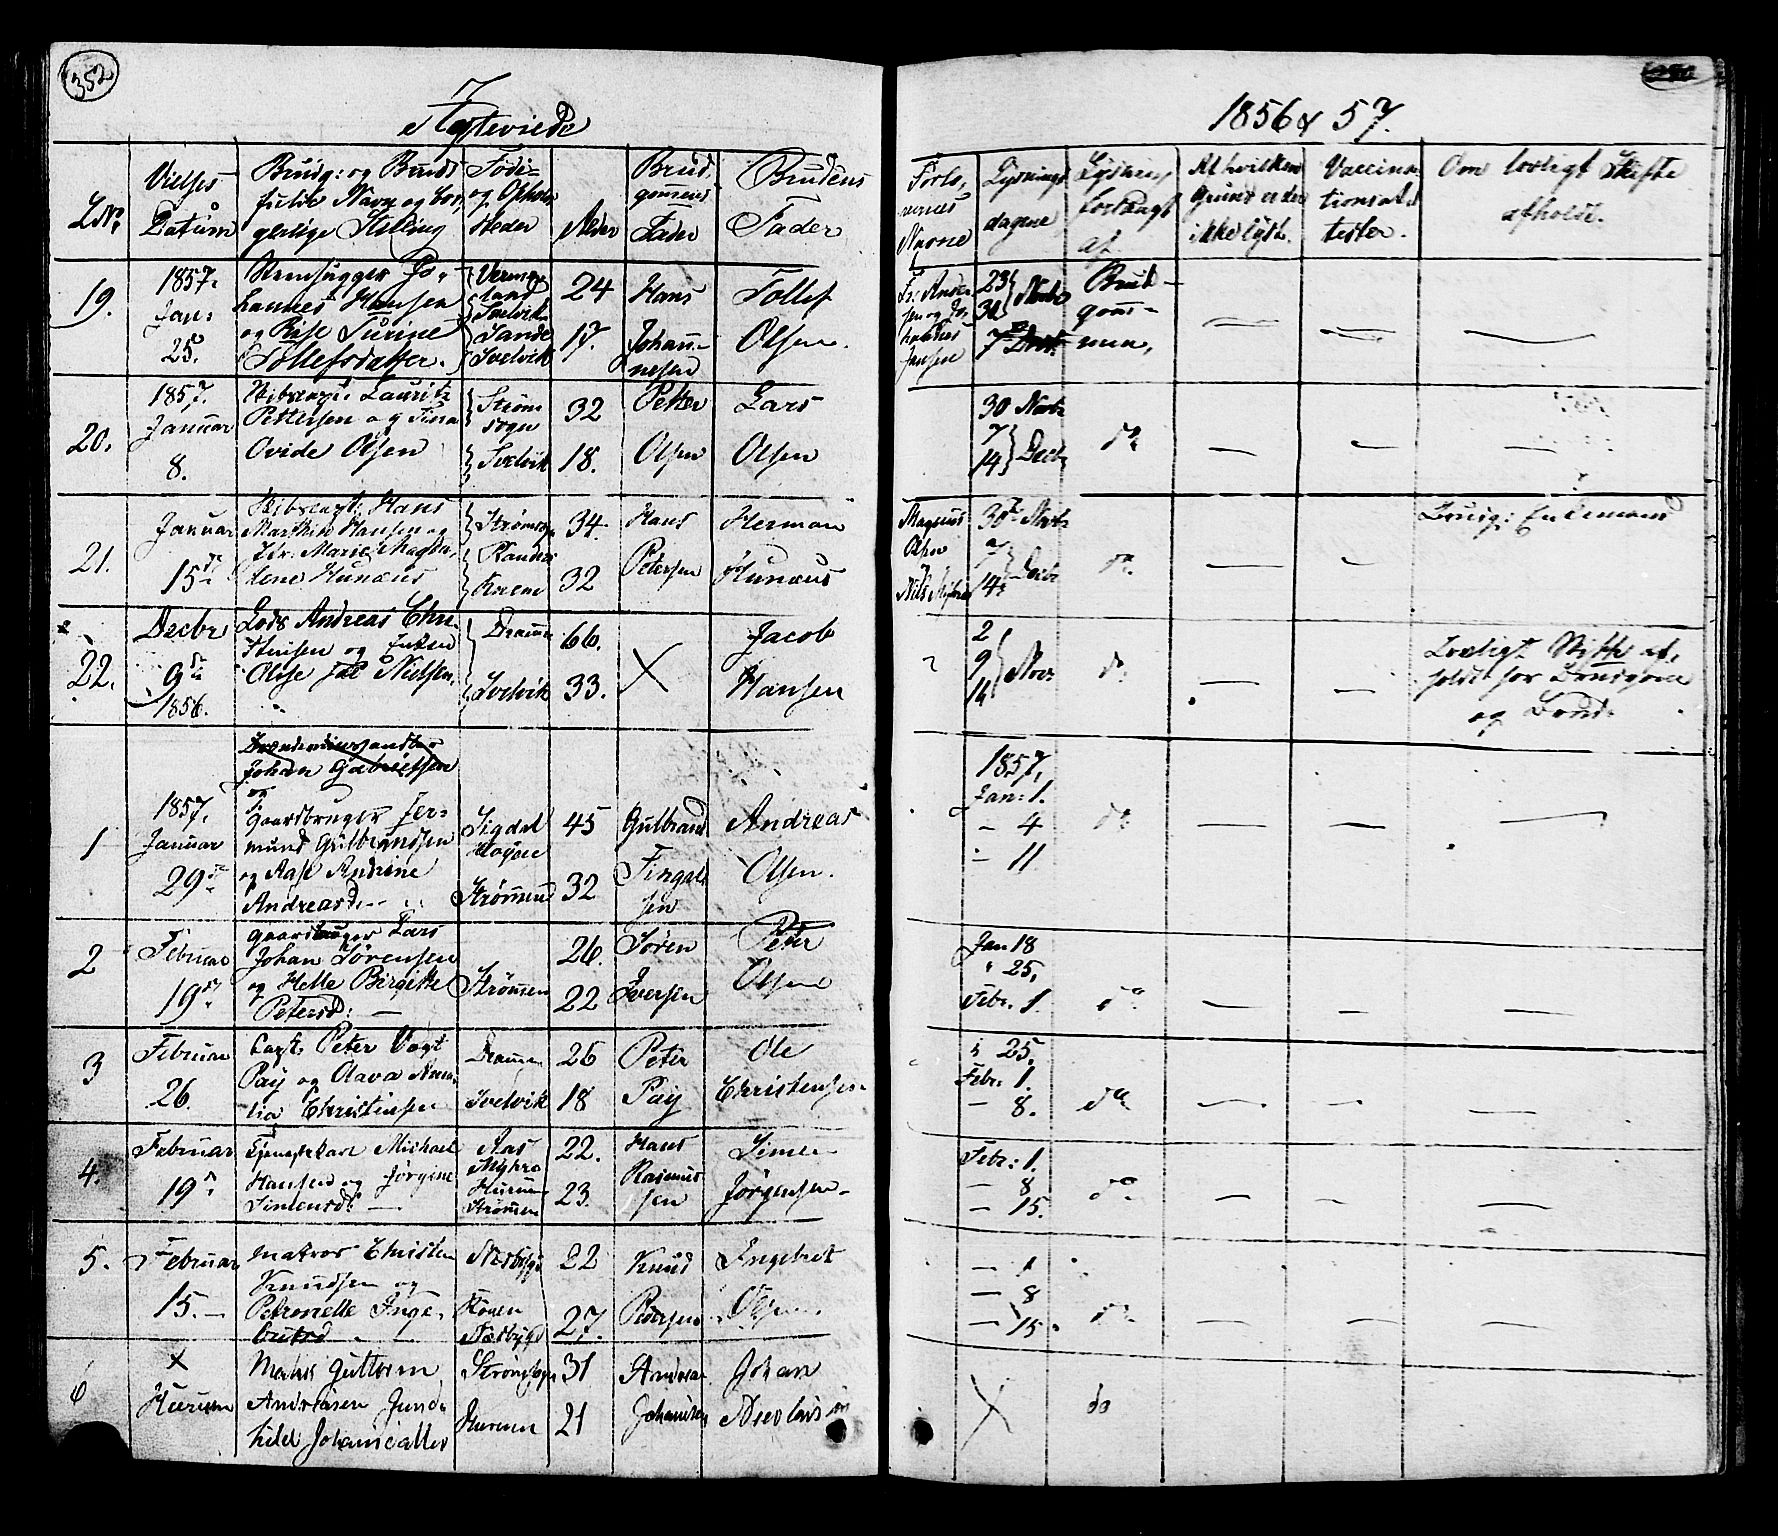 352
Ægteviede
1856 & 57.
LNo
Vielses
Datum
Brudg: og Bruds
fulde Navn og bor-
gerlige Stilling
Føde-
og Opholds
Steder
Alder
Brud-
gommens
Fader
Brudens
Fader
Forlo-
vernes
Navne
Lysnings
dagene
Lysning
forlangt
af
Af hvilken
Grund er der
ikke lyst.
Vaccina-
tionsat-
tester.
Om lovligt Skifte
afholdt.
19.
1857.
Jan:
25.
Steenhugger Jo-
hannes Hansen
og Else Surine
Tollefsdatter.
Verme-
land
Svelvik
Sande
Svelvik
24
17.
Hans
Johan-
nesen
Tollef
Olsen.
Fr: Ander-
sen og Jo-
hannes
Jansen
23
30
Novbr
7 Decbr
Brud-
gom-
men,
20.
1857.
Januar
8.
Skibscapt: Lauritz
Pettersen og Tina
Ovide Olsen
Strøms-
sogn
Svelvik
32
18.
Petter
Olsen
Lars
Olsen
30 Novbr
7
14
Decbr
do
21.
Januar
15de
Skibscapt: Hans
Marthin Hansen og
Jfr: Marie Magda-
lene Hunæus
Strømsgo
34.
32
Hans
Petersen
Herman
Hunæus
Magnus
Olsen
30te Novbr
7
14
Decbr
do
Brudg: Enkemand
22.
Decbr
9de
1856.
Lods Andreas Chri-
stensen og Enken
Olise Jac Nielsen.
Dramm
Svelvik
66.
33.
X
Jacob
Hansen
2
9
16
Nov:
do
Lovligt Skifte af-
holdt for Brudgom
og Brud.
1
1857.
Januar
29de
Johan Gabrielsen
og
Gaardbruger Jer-
mund Gulbrandsen
og Aase Andrine
Andreasd.
Sigdal
Strømmen
45
32
Gulbrand
Fingal-
sen
Andreas
Olsen.
1857,
Jan: 1.
— 4
— 11.
do
2
Februar
19de
Gaardbruger Lars
Johan Sørensen
og Helle Birgitte
Petersd:
Strømmen
26.
22
Søren
Iversen
Peter
Olsen
Jan 18
" 25,
Febr. 1.
do
3
Februar
26.
Capt. Peter Vogt
Pay og Olava Ama-
lia Christensen
Dramme
Svelvik
26
18
Peter
Pay
Ole
Christensen
25.
Febr. 1.
— 8.
do
4.
Februar
19de
Tjenestekarl Michael
Hansen og Jørgine
Simensd:
Aas
Myhra
Hurum
Strømmen
22.
23.
Hans
Rasmus-
sen
Simen
Jørgensen
Febr: 1.
— 8
— 15.
do
5.
Februar
15.
Matros Christen
Knudsen og
Petronelle Inge-
britsd
Næsbygd
Næsbygd
22
27.
Knud
Pedersen
Ingebret
Olsen.
— 1
— 8
— 15.
do
6
X
Hurum
Mads Guttorm
Andreasen Gun-
hild Johansdatter
Strømsogn
Hurum
31
21
Andreas
Johannsen
Johan
Nicolaisen
X
do